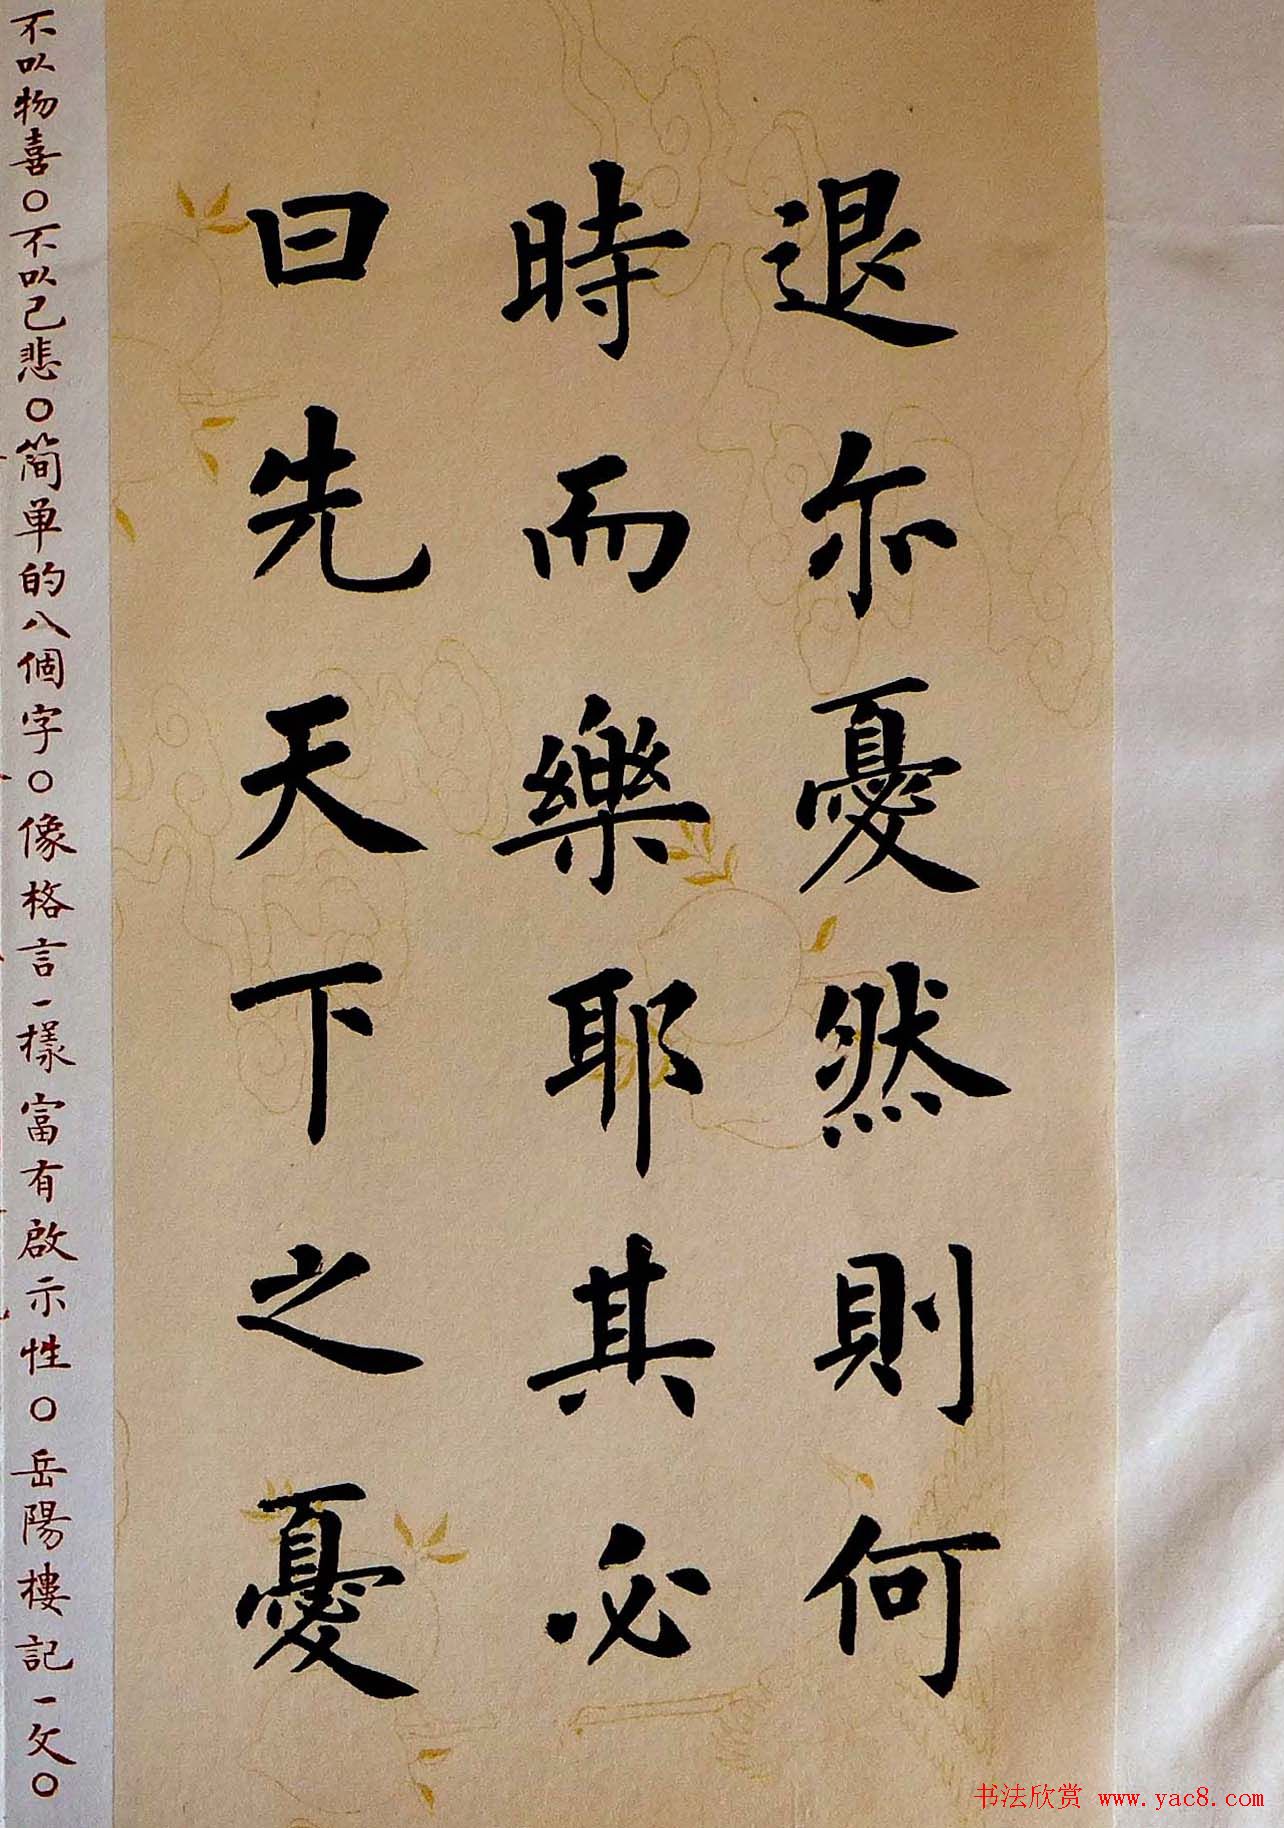 退亦憂然則何
時而樂耶其必
曰先天下之憂
不以物喜○不以己悲○简单的八個字○像格言一樣富有啟示性○岳陽樓記一文○
书法欣赏 www.yac8.com